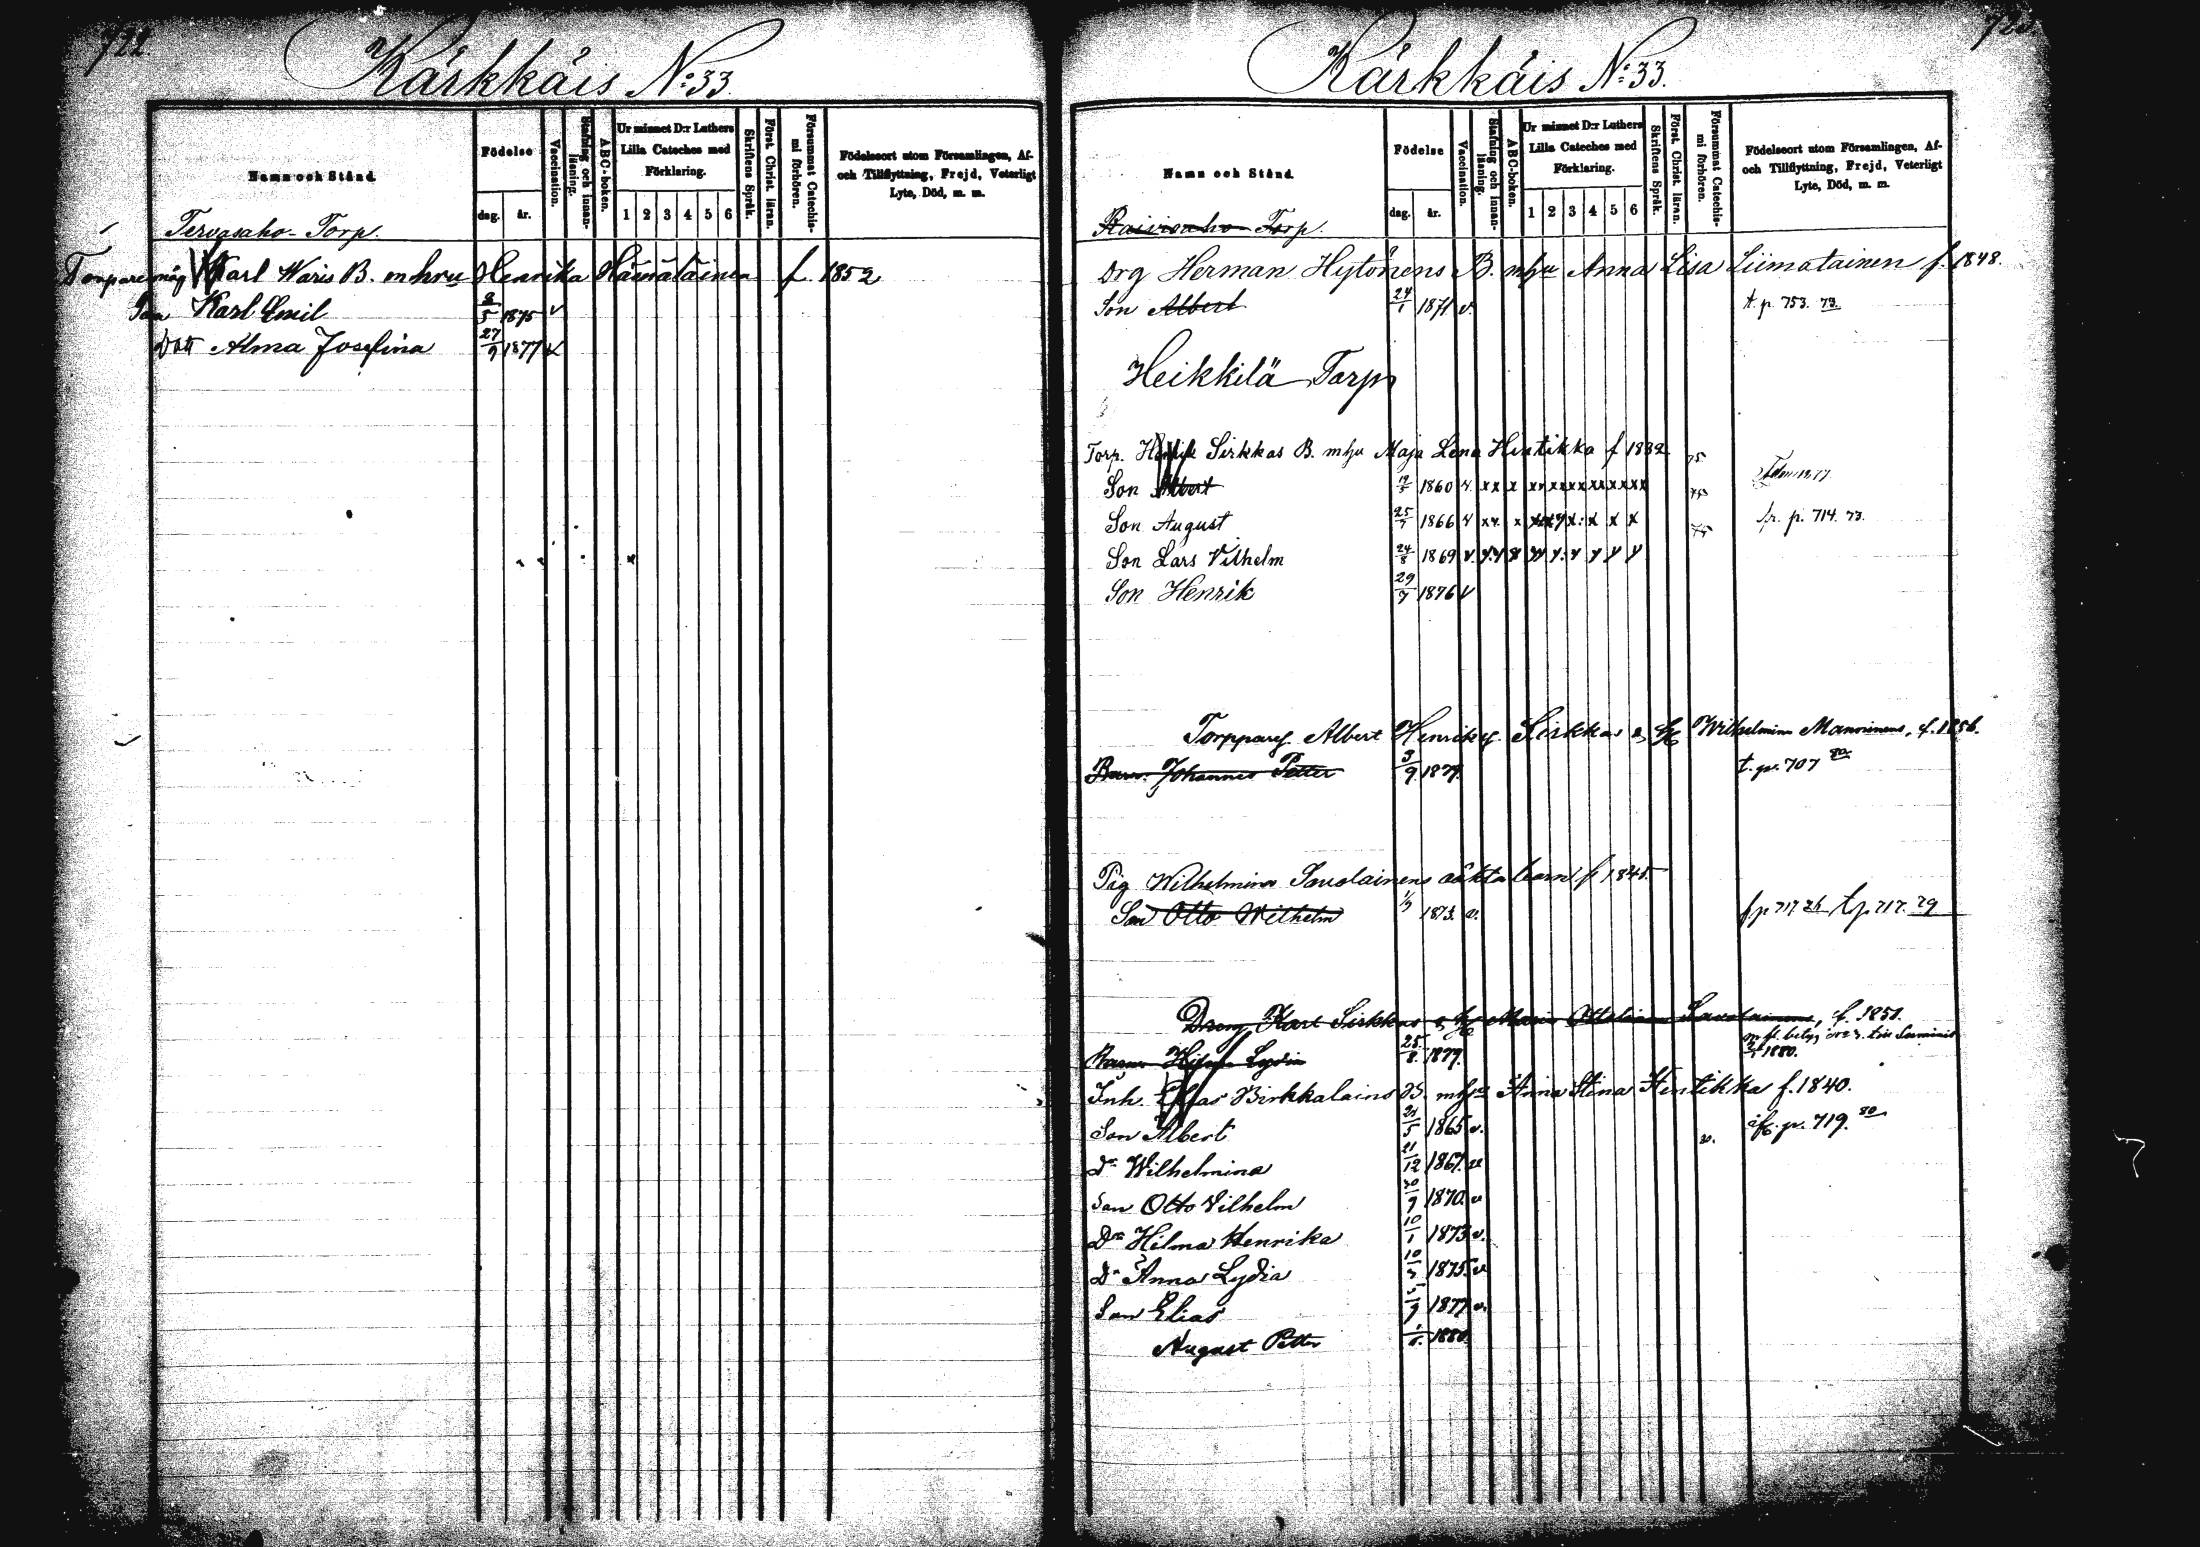 722.
Kärkkäis No:33.
Namn och Stånd
Födelse
dag.
år.
Vaccination.
Stafning och innan-
läsning.
ABC-boken.
Ur minnet D:r Luthers
Lilla Cateches med
Förklaring.
1 2 3 4 5 6
Skriftens Språk.
Först. Christ. läran.
Försummat Catechis-
mi förhören.
Födelseort utom Församlingen, Af-
och Tillflyttning, Frejd, Veterligt
Lyte, Död, m. m.
Tervasaho-Torp.
Torpare måg Karl Waris B. m hru Henrika Hämäläinen f. 1852
Son Karl Emil 2/5 1875 v
Dott Alma Josefina 27/9 1877 v
Kärkkäis No:33.
Namn och Stånd
Födelse
dag.
år.
Vaccination.
Stafning och innan-
läsning.
ABC-boken.
Ur minnet D:r Luthers
Lilla Cateches med
Förklaring.
1 2 3 4 5 6
Skriftens Språk.
Först. Christ. läran.
Försummat Catechis-
mi förhören.
Födelseort utom Församlingen, Af-
och Tillflyttning, Frejd, Veterligt
Lyte, Död, m. m.
Torp.
Drg Herman Hytönens B. mhu Anna Lisa Liimatainen f. 1848.
Son Albert 24/1 1871 v. t. p. 753. 73.
Heikkilä Torp
Torp. Henrik Sirkkas B. mhu Maja Lena Hintikka f 1832 75
Son Albert 1860 v. x x x
Son August 25/7 1866 v fr. p. 714. 73.
Son Lars Vilhelm 24/8 1869 v.
Son Henrik 29/7 1876 v
Torppareg. Albert Henriksg. Sirkkas & H Wilhelmina Manninens, f. 1856.
Barn: Johannes Petter 3/9 1879. t. p. 707 80
Pig Wilhelmina Savolainens oäkta barn f 1845
Son Otto Wilhelm 1873. v. f p 717 t p 717. 79
Dreng Karl Sirkkas & H Maria Savolainens, f. 1851.
Barn: Hilma Lydia 25/8. 1879. 1880.
Inh. Elias Birkkalains B. mhu Anna Stina Hintikka f. 1840.
Son Albert 1865 v. v. p. 719. 80
Dr Wilhelmina 21/12 1867. v
Son Otto Vilhelm 30/9 1870. v
Dr Hilma Henrika 10/1 1873 v.
Dr Anna Lydia 1875. v
Son Elias 5/9 1877 v.
August Petter 1880